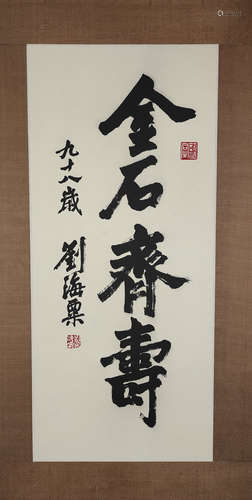 金石齊壽
九十八歲
劉海粟